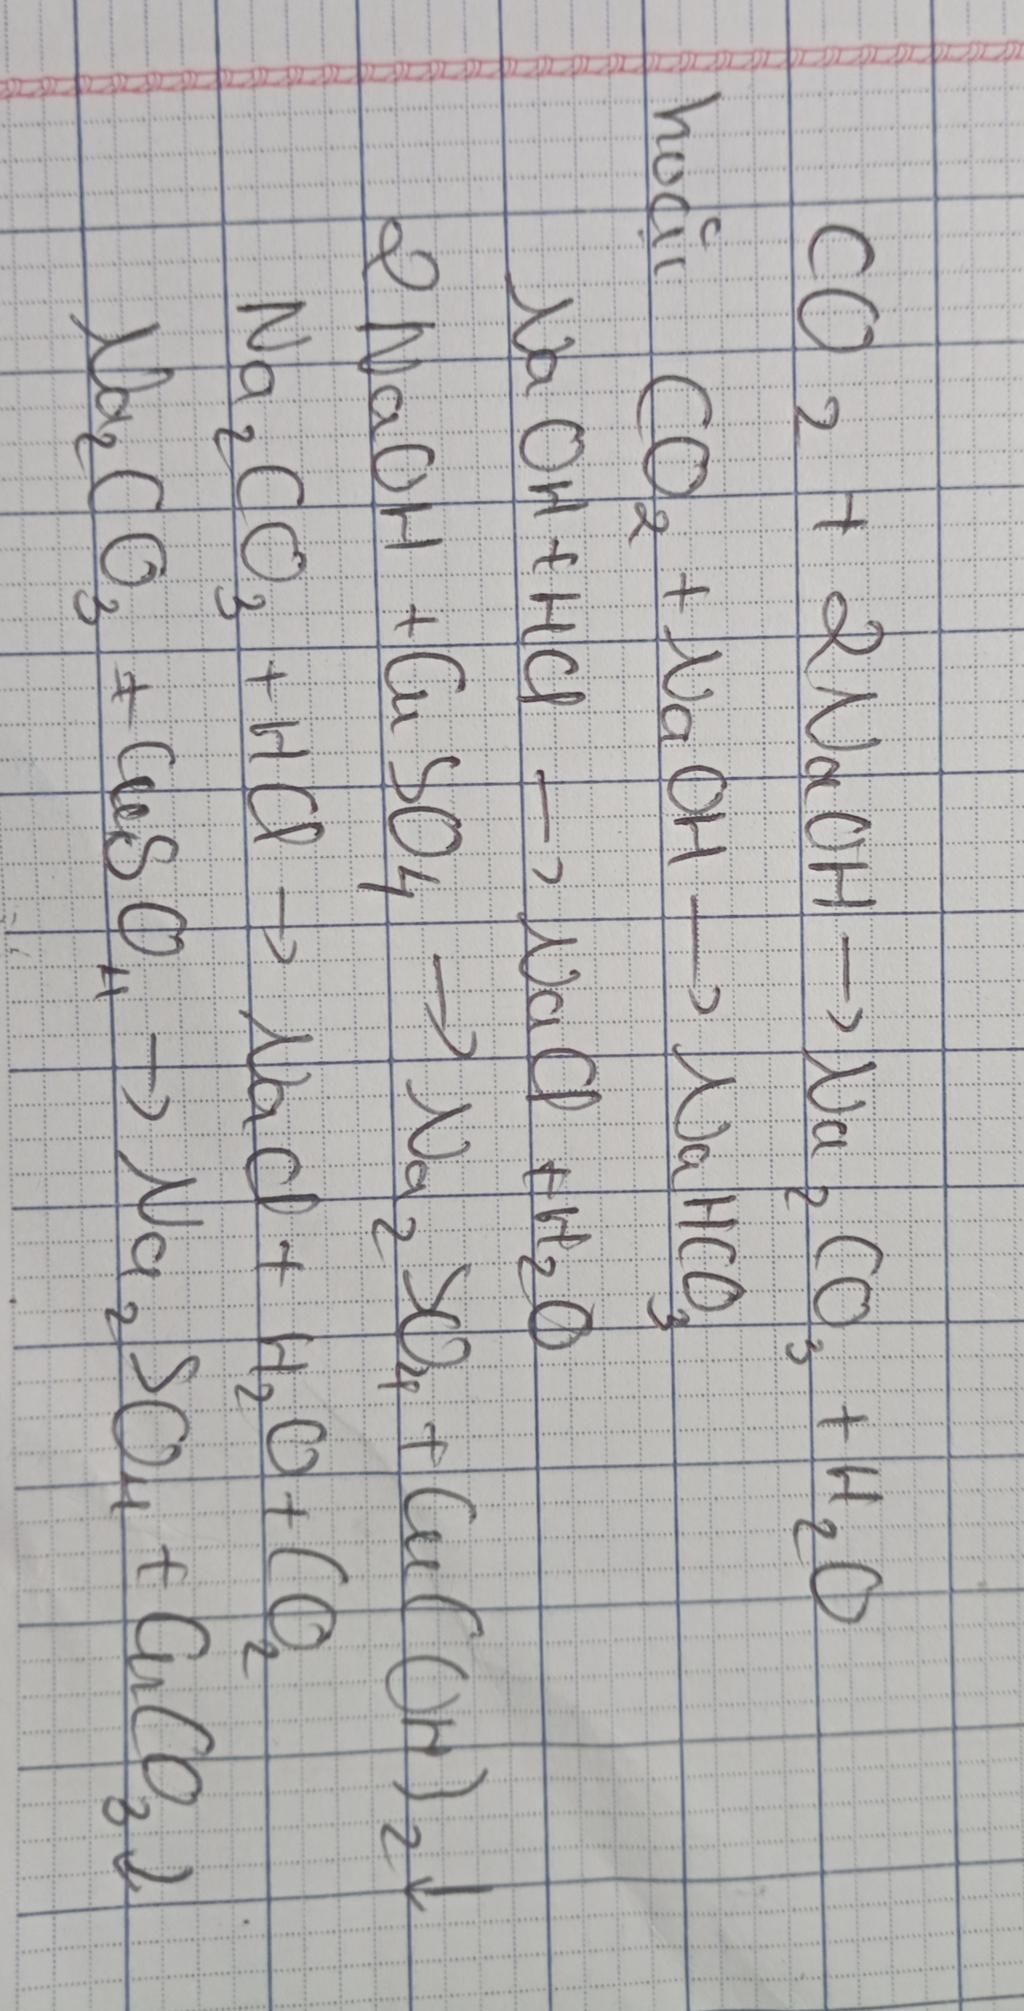 CO₂ + 2NaOH → Na₂CO₃ + H₂O
hoặc CO₂ + NaOH → NaHCO₃
NaOH + HCl → NaCl + H₂O
2NaOH + CuSO₄ → Na₂SO₄ + Cu(OH)₂↓
Na₂CO₃ + HCl → NaCl + H₂O + CO₂
Na₂CO₃ + CuSO₄ → Na₂SO₄ + CuCO₃↓